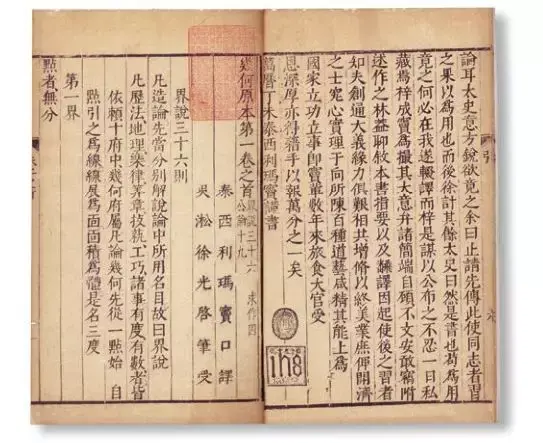 論耳太史意方銳欲竟之余曰止請先傳此使同志者習
之果以爲用也而後徐計其餘太史曰然是書也苟爲用
竟之何必在我遂輟譯而梓是謀以公布之不忍一日私
藏焉梓成竇爲撮其大意弁諸簡端自顧不文安敢竊附
述作之林蓋聊敘本書指要以及翻譯因起使後之習者
知夫創通大義緣力俱艱相共增修以終美業庶俾開濟
之士究心實理于向所陳百種道藝咸精其能上爲
國家立功立事即竇輩數年來旅食大官受
恩深厚亦得藉手以報萬分之一矣
萬曆丁未泰西利瑪竇謹書
ihs
引
幾何原本第一卷之首
界說三十六 求作四
公論十九
泰西利瑪竇口譯
吳淞徐光啓筆受
界說三十六則
凡造論先當分別解說論中所用名目故曰界說
凡歷法地理樂律算章技藝工巧諸事有度有數者皆
依賴十府中幾何府屬凡論幾何先從一點始自
點引之爲線線展爲面面積爲體是名三度
第一界
點者無分